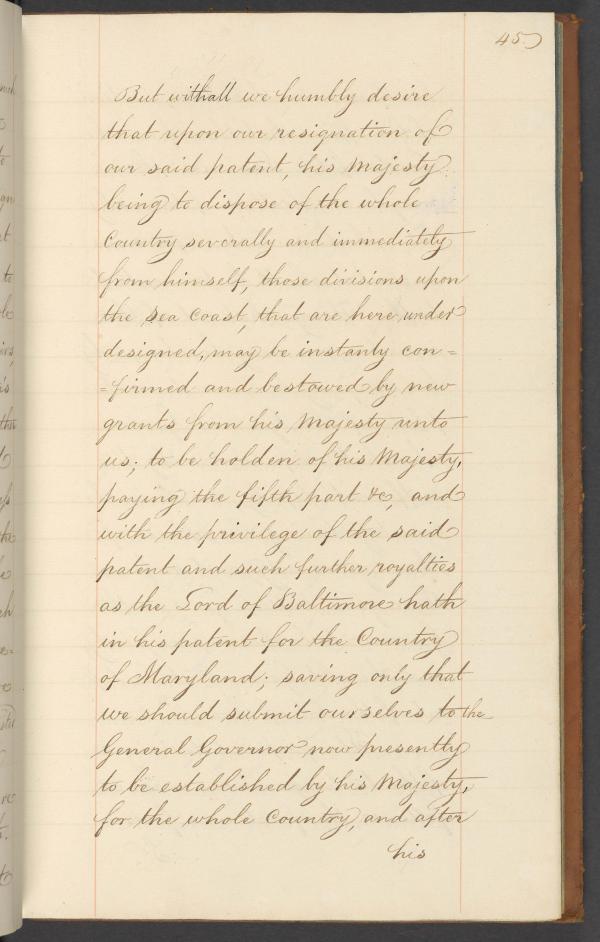 45
But withall we humbly desire
that upon our resignation of
our said patent, his Majesty
being to dispose of the whole
Country severally and immediately
from himself, those divisions upon
the Sea Coast, that are here under
designed, may be instantly con=
=firmed and bestowed by new
grants from his Majesty unto
us; to be holden of his Majesty,
paying the fifth part &c, and
with the privilege of the said
patent and such further royalties
as the Lord of Baltimore hath
in his patent for the Country
of Maryland; saving only that
we should submit ourselves to the
General Governor now presently
to be established by his Majesty,
for the whole Country, and after
his